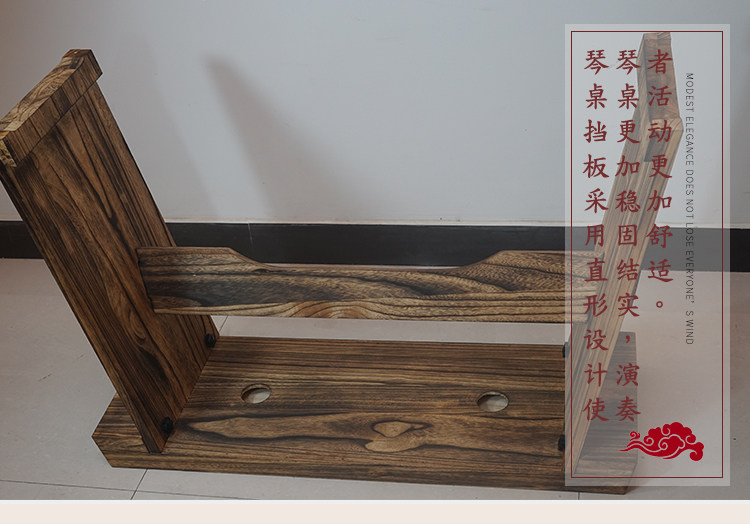 琴桌挡板采用直形设计使
琴桌更加稳固结实，演奏
者活动更加舒适。
MODEST ELEGANCE DOES NOT LOSE EVERYONE" S WIND